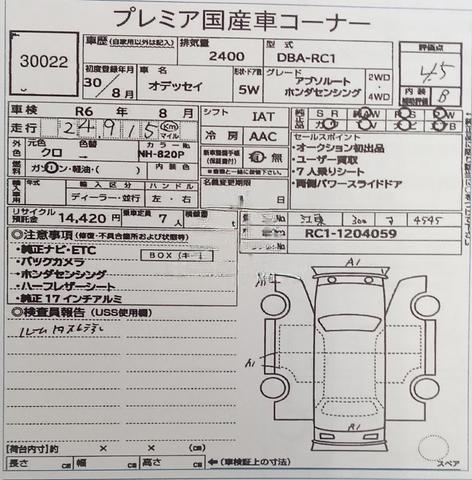 プレミア国産車コーナー
30022
車歴 (自家用以外は記入) 排気量 2400 型式 DBA-RC1 評価点 4.5
初度登録年月 30/8月 車名 オデッセイ 形状・ドア数 5W グレード アブソルート ホンダセンシング 2WD・4WD 内装 補助評価 B
車検 R6 年 8 月 シフト IAT 純正品 S R 純 A W P S P W
走行 24,915 Km マイル 冷房 AAC
外色 元色 クロ 色替 → カラーNo NH-820P
セールスポイント
・オークション初出品
・ユーザー買取
・7人乗りシート
・両側パワースライドドア
燃料 ガソリン・軽油・( ) 内装色
新車整備手帳 (保証書付) 有・無
名義変更期限 月 日
輸入車用 年式 輸入区分 ディーラー・並行 ハンドル 左・右
リサイクル預託金 14,420 円 乗車定員 7 人 積載量
江東 300 7 4595
RC1-1204059
◎注意事項 (修復・不具合箇所および状態等)
・純正ナビ・ETC
・バックカメラ
・ホンダセンシング
・ハーフレザーシート
・純正17インチアルミ
BOX (キー
◎検査員報告 (USS使用欄)
A1
A1
A1
A1
【荷台内寸】約 × ×
長さ cm 幅 cm 高さ cm ←(車検証上の寸法)
スペア